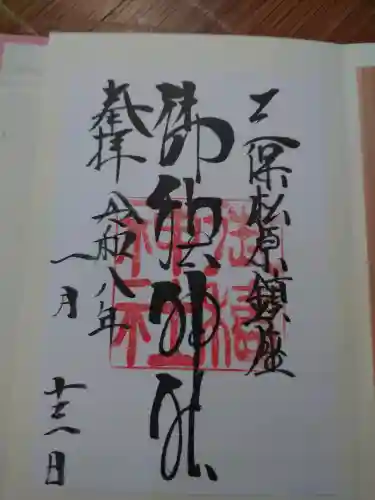 三保松原鎮座
御穂神社
奉拝 令和八年
一月 十三日